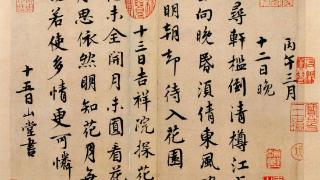 丙午三月
十二日晚
尋軒檻倒清樽江
向晚昏須倩東風
明朝却待入花園
十三日吉祥院探花
未全開月未圓看花
思依然明知花月
若使多情更可憐
十五日山堂書